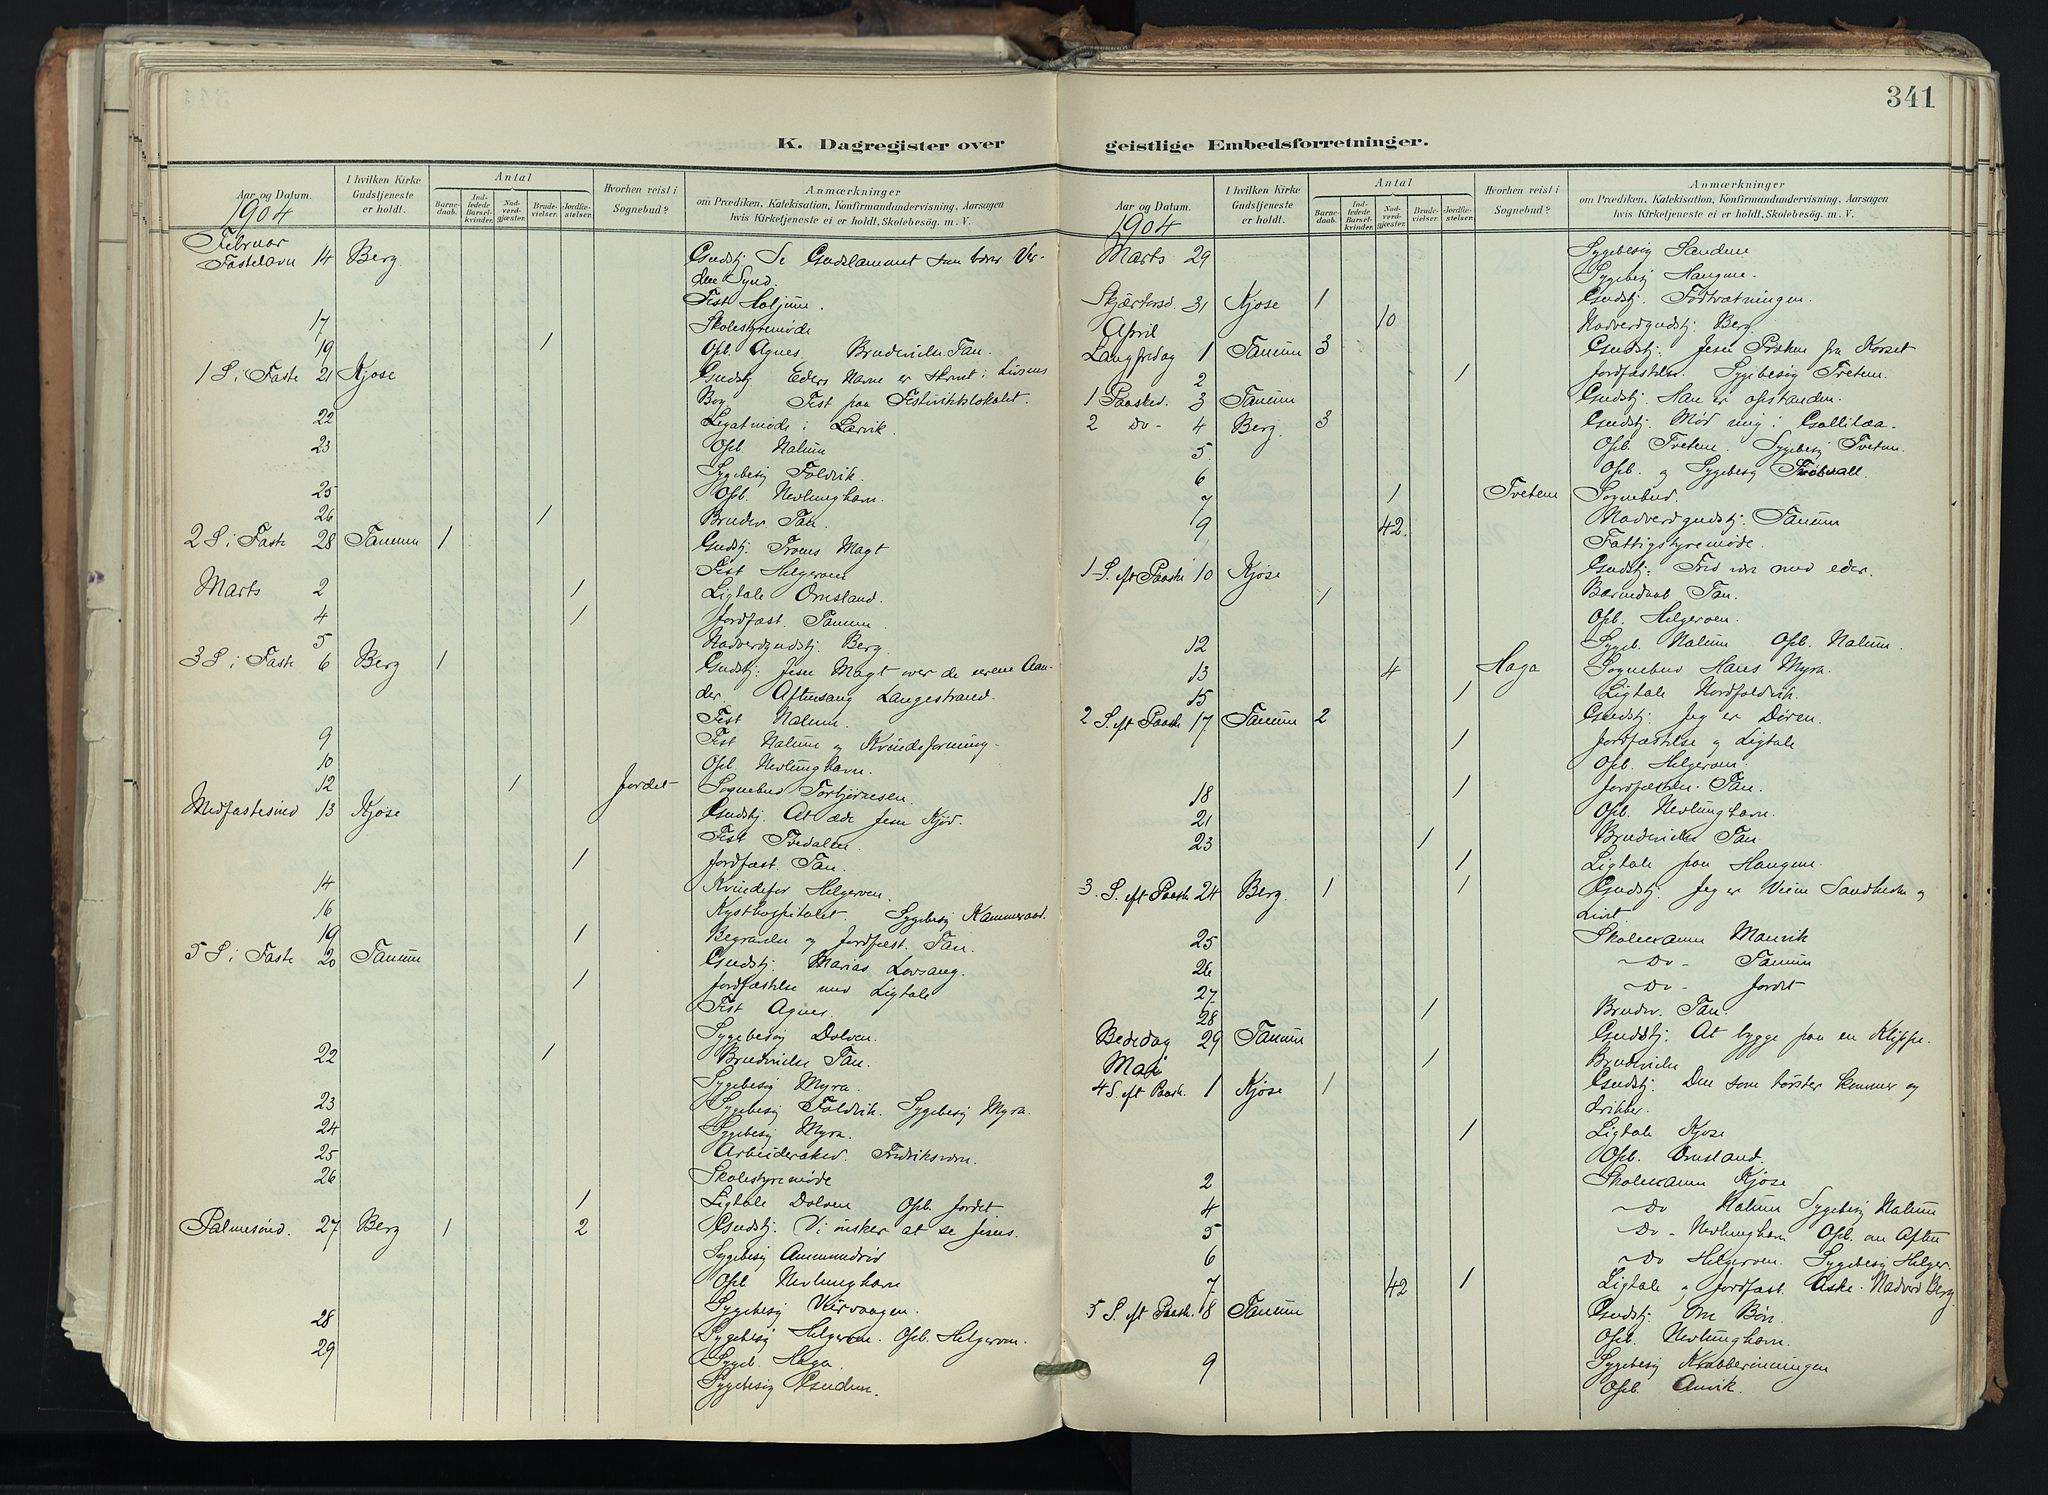 341
K. Dagregister over geistlige Embedsforretninger.
Aar og Datum.
I hvilken Kirke Gudstjeneste er holdt.
Antal
Barnedaab.
Indledede Barselkvinder.
Nadverdgjæster.
Brudevielser.
Jordfæstelser.
Hvorhen reist i Sognebud?
Anmærkninger
om Prædiken, Katekisation, Konfirmandundervisning, Aarsagen
hvis Kirketjeneste ei er holdt, Skolebesøg. m. V.
1904
Februar
Fastelavn 14 Berg Gudstj. Se Gudslammet som bærer Ver-
dens Synd.
Fest
17 Skolestyremøde
19 1 Opb. Agnes. Brudevielse Tan.
1 S. i Faste 21 Kjose Gudstj. Eders Navne er skrevet i Livsens
Bog. Fest paa
22 i Larvik.
23 Opb. Nalum
Sygebesøg Foldvik.
25 Opb. Nevlunghavn.
26 1 Brudev. Tan.
2 S. i Faste 28 Tanum 1 Gudstj. Troens Magt
Fest Helgeroen
Marts 2 1 Ligtale Omsland.
4 1 Jordfæst. Tanum.
5 Nadverdgudstj. Berg.
3 S. i Faste 6 Berg 1 Gudstj: Jesu Magt over de urene Aan-
der. Aftensang Langestrand.
Fest Nalum.
9 Fest Nalum og Kvindeforening
10 Opb. Nevlunghavn.
12 1 Jordet Sognebud Torbjørnsen.
Midfastesønd 13 Kjose Gudstj. At æde Jesu Kjød.
Fest Tvedalen.
1 Jordfæst. Tan.
14 Kvindefor Helgeroen.
16 Kysthospitalet. Sygebesøg
19 1 Begravelse og Jordfæst. Tan.
5 S. i Faste 20 Tanum Gudstj: Marias Lovsang.
1 Jordfæstelse med Ligtale
Fest Agnes.
Sygebesøg Dolven.
22 1 Brudevielse Tan.
Sygebesøg Myra.
23 Sygebesøg Foldvik. Sygebesøg Myra.
24 Sygebesøg Myra.
25 Fredriksværn.
26 Skolestyremøde
1 Ligtale Dolven Opb. Jordet
Palmesønd. 27 Berg 1 2 Gudstj: Vi ønsker at se Jesus.
Sygebesøg Ammundrød
Opb. Nevlunghavn
28 Sygebesøg Virvaagen.
Sygebesøg Helgeroen. Opb. Helgeroen.
29 Sygeb. Haga.
Sygebesøg
Aar og Datum.
I hvilken Kirke Gudstjeneste er holdt.
Antal
Barnedaab.
Indledede Barselkvinder.
Nadverdgjæster.
Brudevielser.
Jordfæstelser.
Hvorhen reist i Sognebud?
Anmærkninger
om Prædiken, Katekisation, Konfirmandundervisning, Aarsagen
hvis Kirketjeneste ei er holdt, Skolebesøg. m. V.
1904
Marts 29 Sygebesøg Sandene
Sygebesøg Haugene.
Skjærtorsd. 31 Kjose 1 Gudstj. Fodtvætningen.
10 Nadverdgudstj. Berg.
April
Langfredag 1 Tanum 3 Gudstj: Jesu Røsten fra Korset
2 1 Jordfæstelse. Sygebesøg Tveten.
1 Paasked. 3 Tanum Gudstj: Han er opstanden.
2 Do- 4 Berg. 3 Gudstj: Mød mig i Gallilæa.
5 Opb. Tveten. Sygebesøg Tveten
6 Opb. og Sygebesøg
7 1 Tveten Sognebud.
9 42 Nadverdgudstj: Tanum
Fattigstyremøde.
1 S. eft Paaske 10 Kjose Gudstj: Fred være med eder.
1 Barnedaab Tan.
Opb. Helgeroen.
12 Sygeb. Nalum Opb. Nalum.
13 4 Haga Sognebud Hans Myra.
15 1 Ligtale Nordfoldvik.
2 S. eft Paaske 17 Tanum 2 Gudstj: Jeg er Døren.
1 Jordfæstelse og Ligtale
Opb. Helgeroen.
18 1 Jordfæstelse. Tan.
21 Opb. Nevlunghavn.
23 1 Brudevielse Tan
1 Ligtale paa Haugene.
3. S. eft Paaske 24 Berg. 1 1 Gudstj: Jeg er Veien Sandheden og
Livet.
25 Skolexamen Manvik
26 Do Tanum
27 Do Jordet
28 1 Brudev. Tan.
Bededag 29 Tanum Gudstj: At bygge paa en Klippe.
1 Brudevielse
Mai
4 S. eft Paask. 1 Kjose 1 Gudstj: Den som tørster kommer og
drikker.
1 Ligtale Kjose
Opb. Omsland.
2 Skolexamen Kjose
4 Do Nalum Sygebesøg Nalum
5 Do- Nevlunghavn Opb. om Aften
6 Do Helgeroen. Sygebesøg Helger.
7 42 1 Ligtale og Jordfæst. Aske. Nadverd Berg.
5 S. eft Paask. 8 Tanum Gudstj: Om Bøn.
Opb. Nevlunghavn.
9 Sygebesøg Krabberønningen
Opb. Anvik.